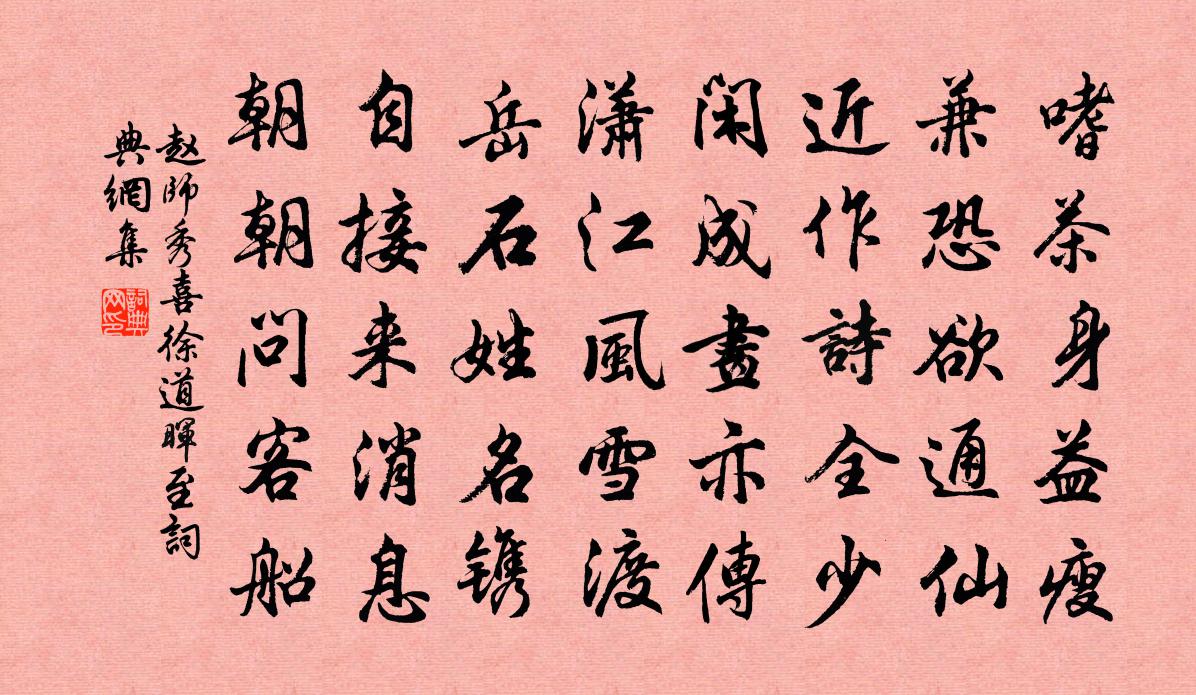 嗜茶身益瘦
兼恐欲通仙
近作詩全少
閑成畫亦傳
瀟江風雪渡
岳石姓名镌
自接来消息
朝朝問客船
赵師秀喜徐道暉至詞
典網集
詞典
网印